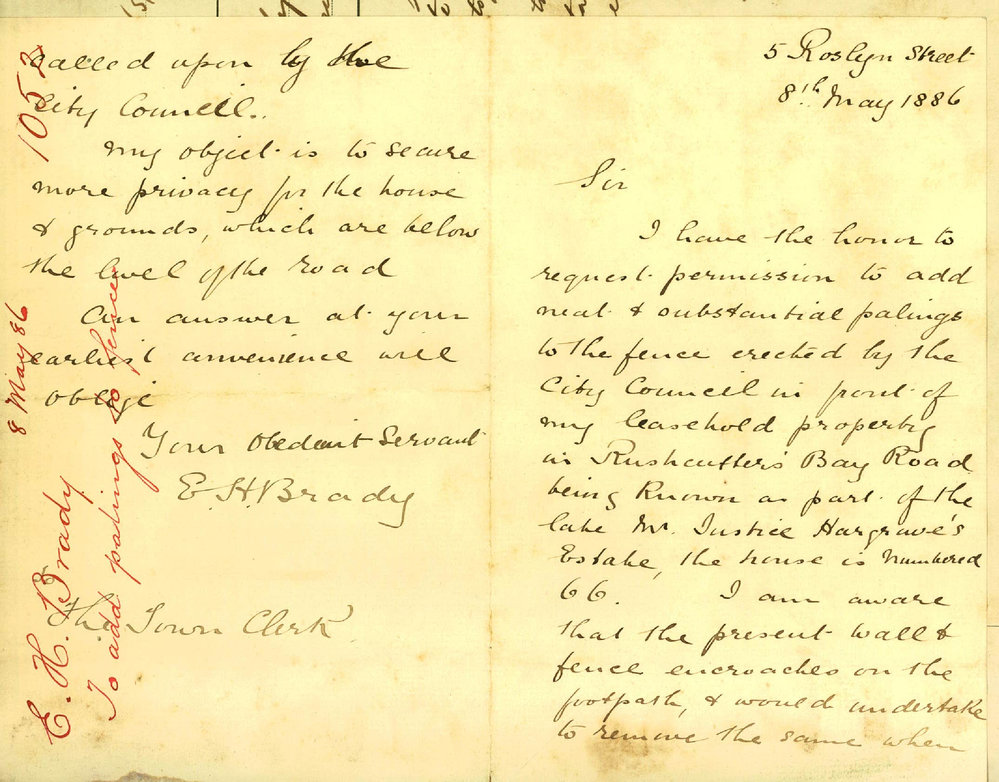 5 Roslyn Street
8th May 1886
Sir
I have the honor to
request permission to add
neat & substantial palings
to the fence erected by the
City Council in front of
my leasehold property
in Rushcutter's Bay Road
being known as part of the
late Mr. Justice Hargrave's
Estate, the house is numbered
66. I am aware
that the present wall &
fence encroaches on the
footpath, & would undertake
to remove the same when
called upon by the
City Council.
My object is to secure
more privacy for the house
& grounds, which are below
the level of the road
An answer at your
earliest convenience will
oblige
Your Obedient Servant
E. H. Brady
The Town Clerk
1053
8 May 86
E. H. Brady
To add palings to fence